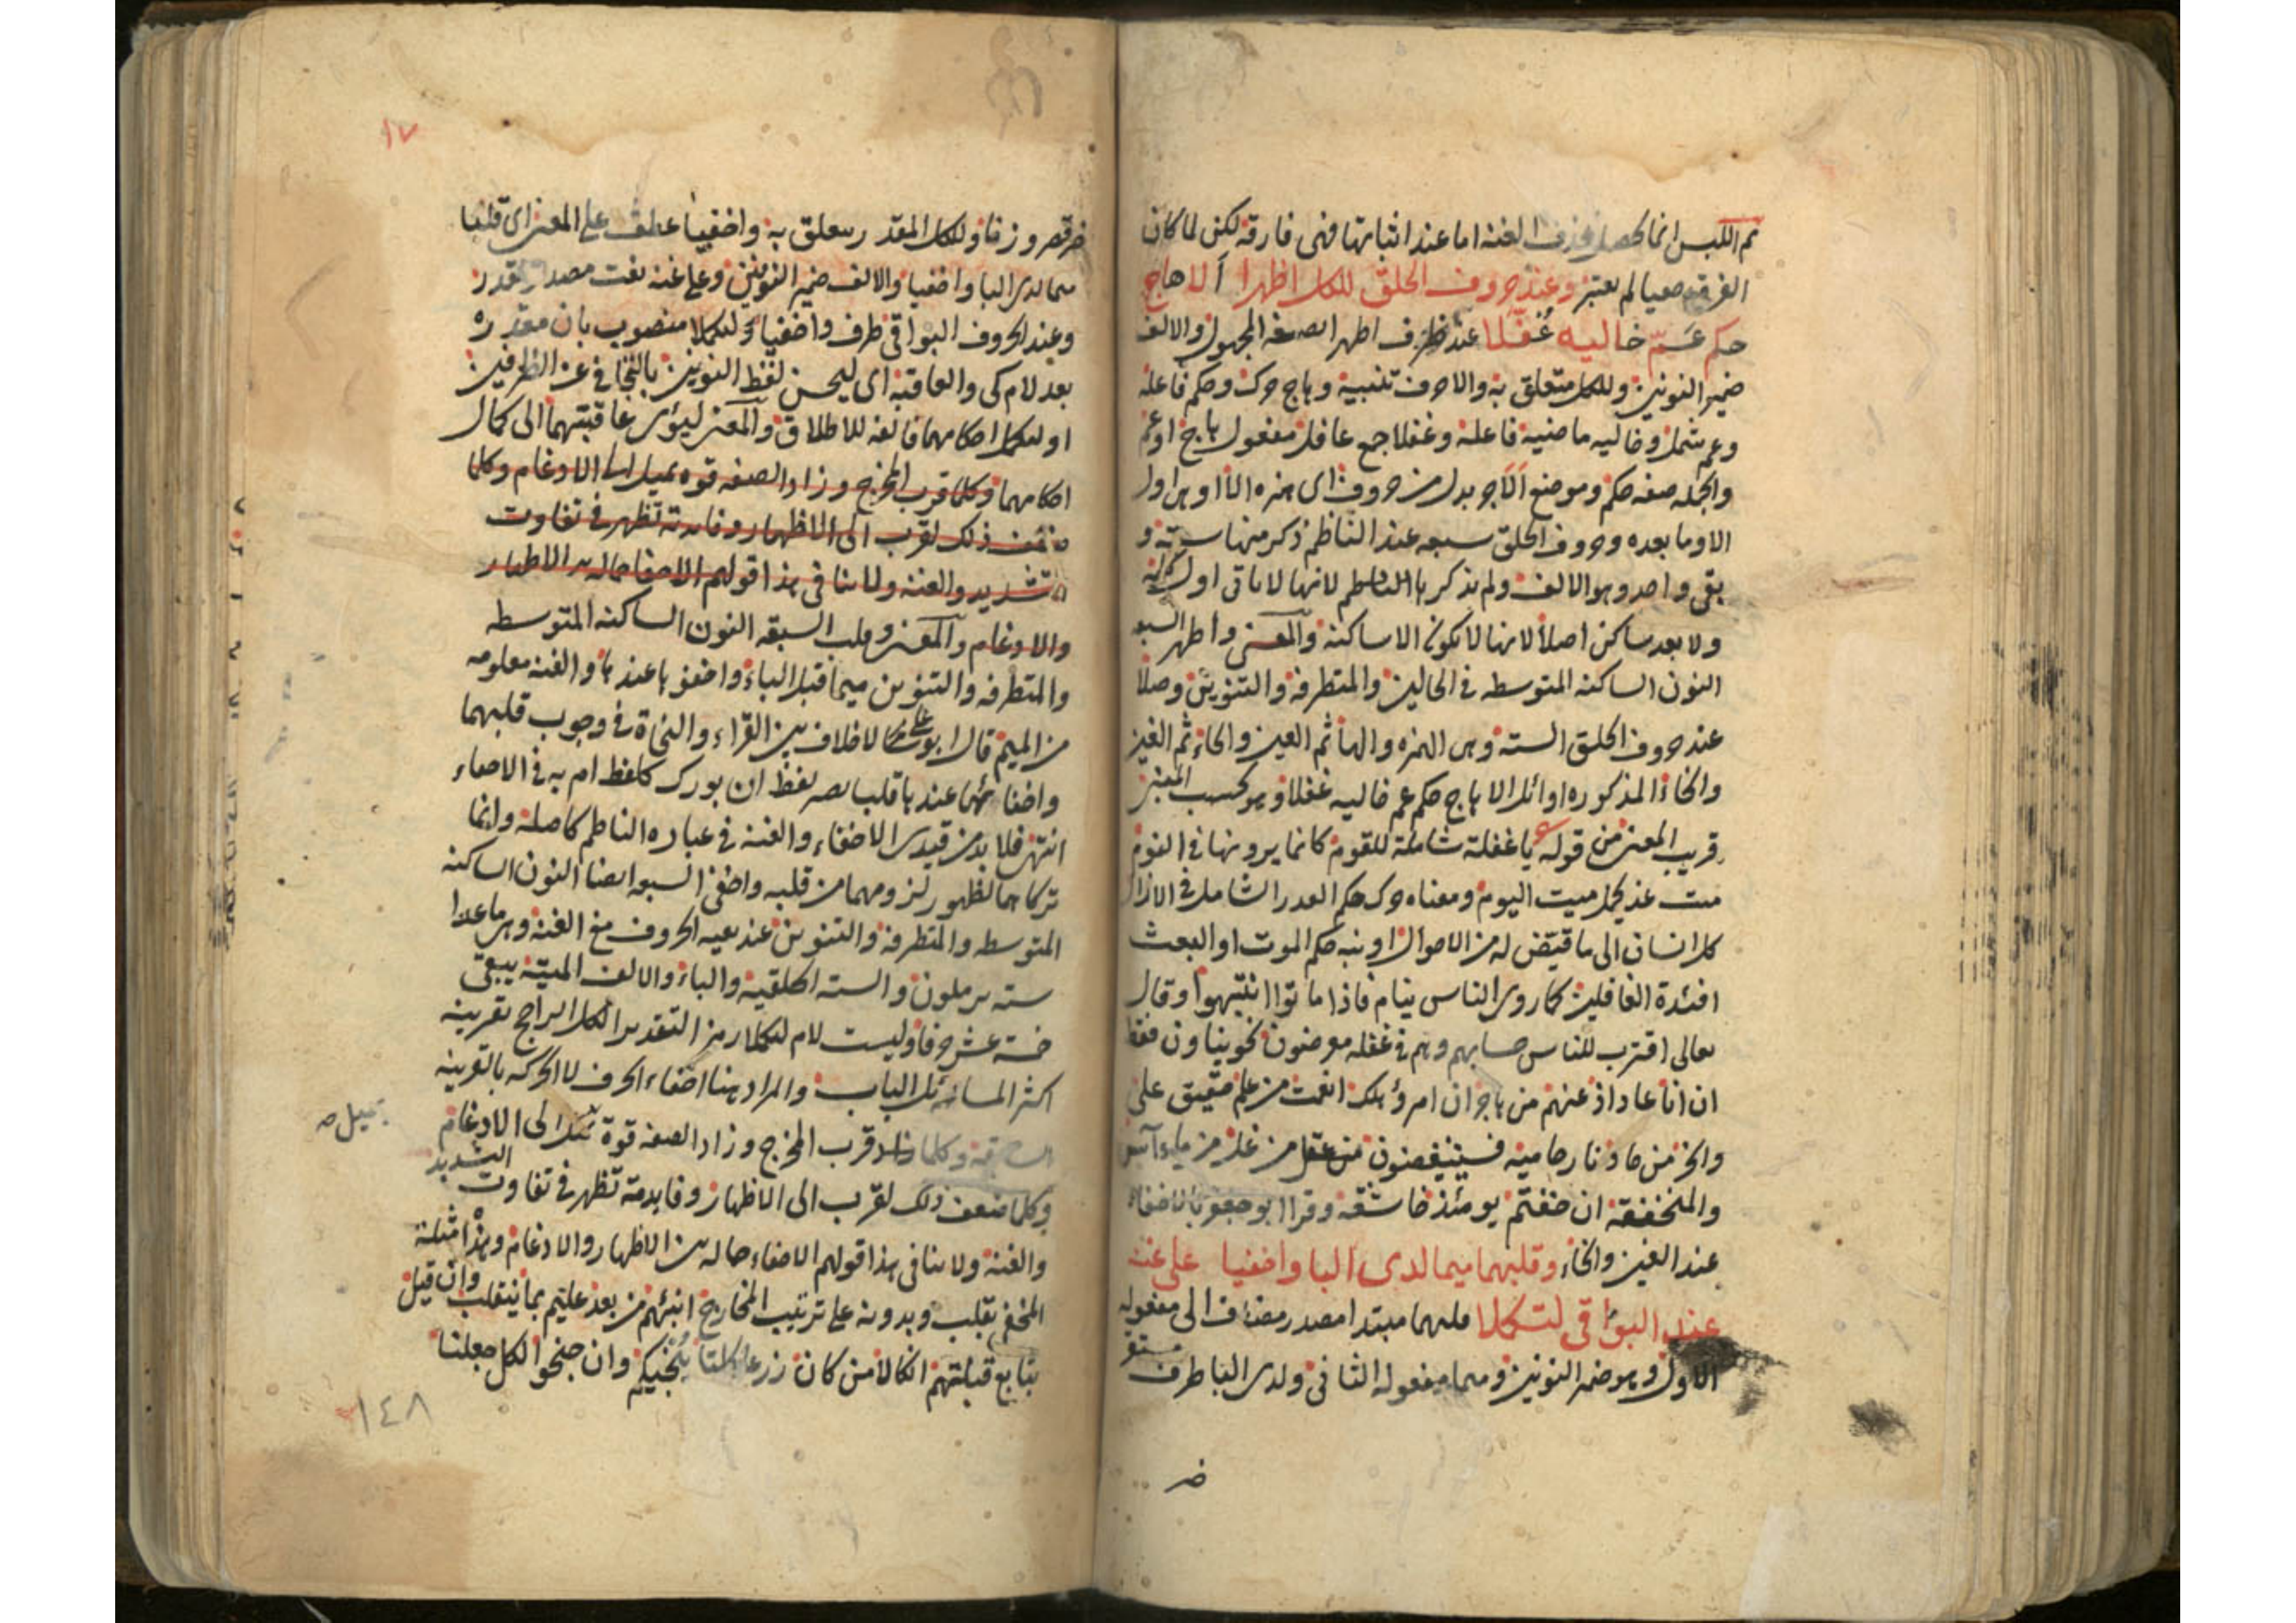 ثم اللبس انما يحصل بحذف الغنة اما عند اثباتها فهي فارقة لكن لما كان
الفرق خفيا لم يعتبر وعند حروف الحلق للكل اظهرا ألا هاج
حكم عم خاليه غفلا عند ظرف اظهرا بصيغة المجهول والالف
ضمير النونين وللكل متعلق به والا حرف تنبيه وهاج حرك وحكم فاعله
وعم شمل وخاليه ماضيه فاعله وغفلا جمع غافل مفعول هاج او عم
والجملة صفة حكم وموضع ألا جر بدل من حروف اى همزه الا او هى اول
الا وما بعده وحروف الحلق سبعه عند الناظم ذكر منها ستة و
بقى واحد وهو الالف ولم يذكرها الناظم لانها لا تاتى اول كلمة
ولا بعد ساكن اصلا لانها لا تكون الا ساكنة والمعنى واظهر السبعه
النون الساكنه المتوسطه فى الحالين والمتطرفة والتنوين وصلا
عند حروف الحلق الستة وهى الهمزه والهاء ثم العين والحاء ثم الغين
والخاء المذكوره اوائل الا هاج حكم عم خاليه غفلا وهو بحسب المعنى
قريب المعنى من قوله ع يا غفلة شاملة للقوم كانما يرونها فى النوم
ميت غد يحمل ميت اليوم ومعناه حرك حكم القدر الشامل فى الازل
كل انسان الى ما قيض له من الاحوال او نبه حكم الموت او البعث
افئدة الغافلين كما روى الناس نيام فاذا ماتوا انتبهوا وقال
تعالى اقترب للناس حسابهم وهم فى غفله معرضون نحو ينأون فقط
ان انا عاد اذ عنهم من هاجر ان امرؤ هلك انعمت من علم حقيق على
وانحر من حاد نار حاميه فسينغضون من غل من ماء آسن
والمنخنقة ان خفتم يومئذ خاشعة وقرا ابو جعفر بالاخفاء
عند الغين والخاء وقلبهما ميما لدى البا واخفيا على غنة
عند البواقى لتكملا قلبهما مبتدا مصدر مضاف الى مفعوله
الاول وهو ضمير النونين وميما مفعوله الثانى ولدى البا ظرف مستقر
خبر
١٧
خبر قصر وزنا وللكل المقدر يتعلق به واخفيا عطف على المعنى اى قلبا
ميما لدى البا واخفيا والالف ضمير النونين وعلى غنه نعت مصدر مقدر
وعند الحروف البواقى ظرف واخفيا ولتكملا منصوب بان مقدره
بعد لام كى والعاقبة اى ليحسن لفظ النونين بالتجافى عن الطرفين
او لتكمل احكامهما فالفه للاطلاق والمعنى ليؤدى عاقبتهما الى كمال
احكامهما وكلما قرب المخرج وزاد الصفه قوه يميل الى الادغام وكلما
ضعف ذلك لقرب الى الاظهار وفايدته تظهر فى تفاوت
التشديد والغنه ولا ينافى هذا قولهم الاخفا حاله بين الاظهار
والادغام والمعنى وقلب السبعه النون الساكنه المتوسطه
والمتطرفه والتنوين ميما قبل الباء واخفوها عندها والغنه معلومه
من الميم قال ابو على لا خلاف بين القراء والنحاة فى وجوب قلبهما
واخفائهما عندها قلب يصر لفظ ان بورك كلفظ ام به فى الاخفاء
انتهى فلا بد من قيدى الاخفاء والغنه فى عباره الناظم كاصله وانما
تركاهما لظهور لزومهما من قلبه واخفى السبعه ايضا النون الساكنه
المتوسطه والمتطرفة والتنوين عند بقيه الحروف مع الغنة وهى ما عدا
سته يرملون والسته الحلقية والباء والالف الميتة يبقى
خمسة عشر حرفا وليست لام لتكملا رمز التقدير الكل الراجح بقرينه
اكثر المسائل الباب والمراد هنا اخفاء الحرف لا الحركه بالقرينه
السابقة وكلما قرب المخرج وزاد الصفه قوة تميل الى الادغام
تميل صح
وكلما ضعف ذلك لقرب الى الاظهار وفايدته تظهر فى تفاوت التشديد
والغنة ولا ينافى هذا قولهم الاخفاء حاله بين الاظهار والادغام وهذا امثلة
المخفى بقلب وبدونه على ترتيب المخارج انبئهم من بعد عليم بما ينقلب وان قيل
بتابع قبلتهم انكالا من كان زرعا كلتا ينجيكم وان جنحوا لكل جعلنا
١٤٨